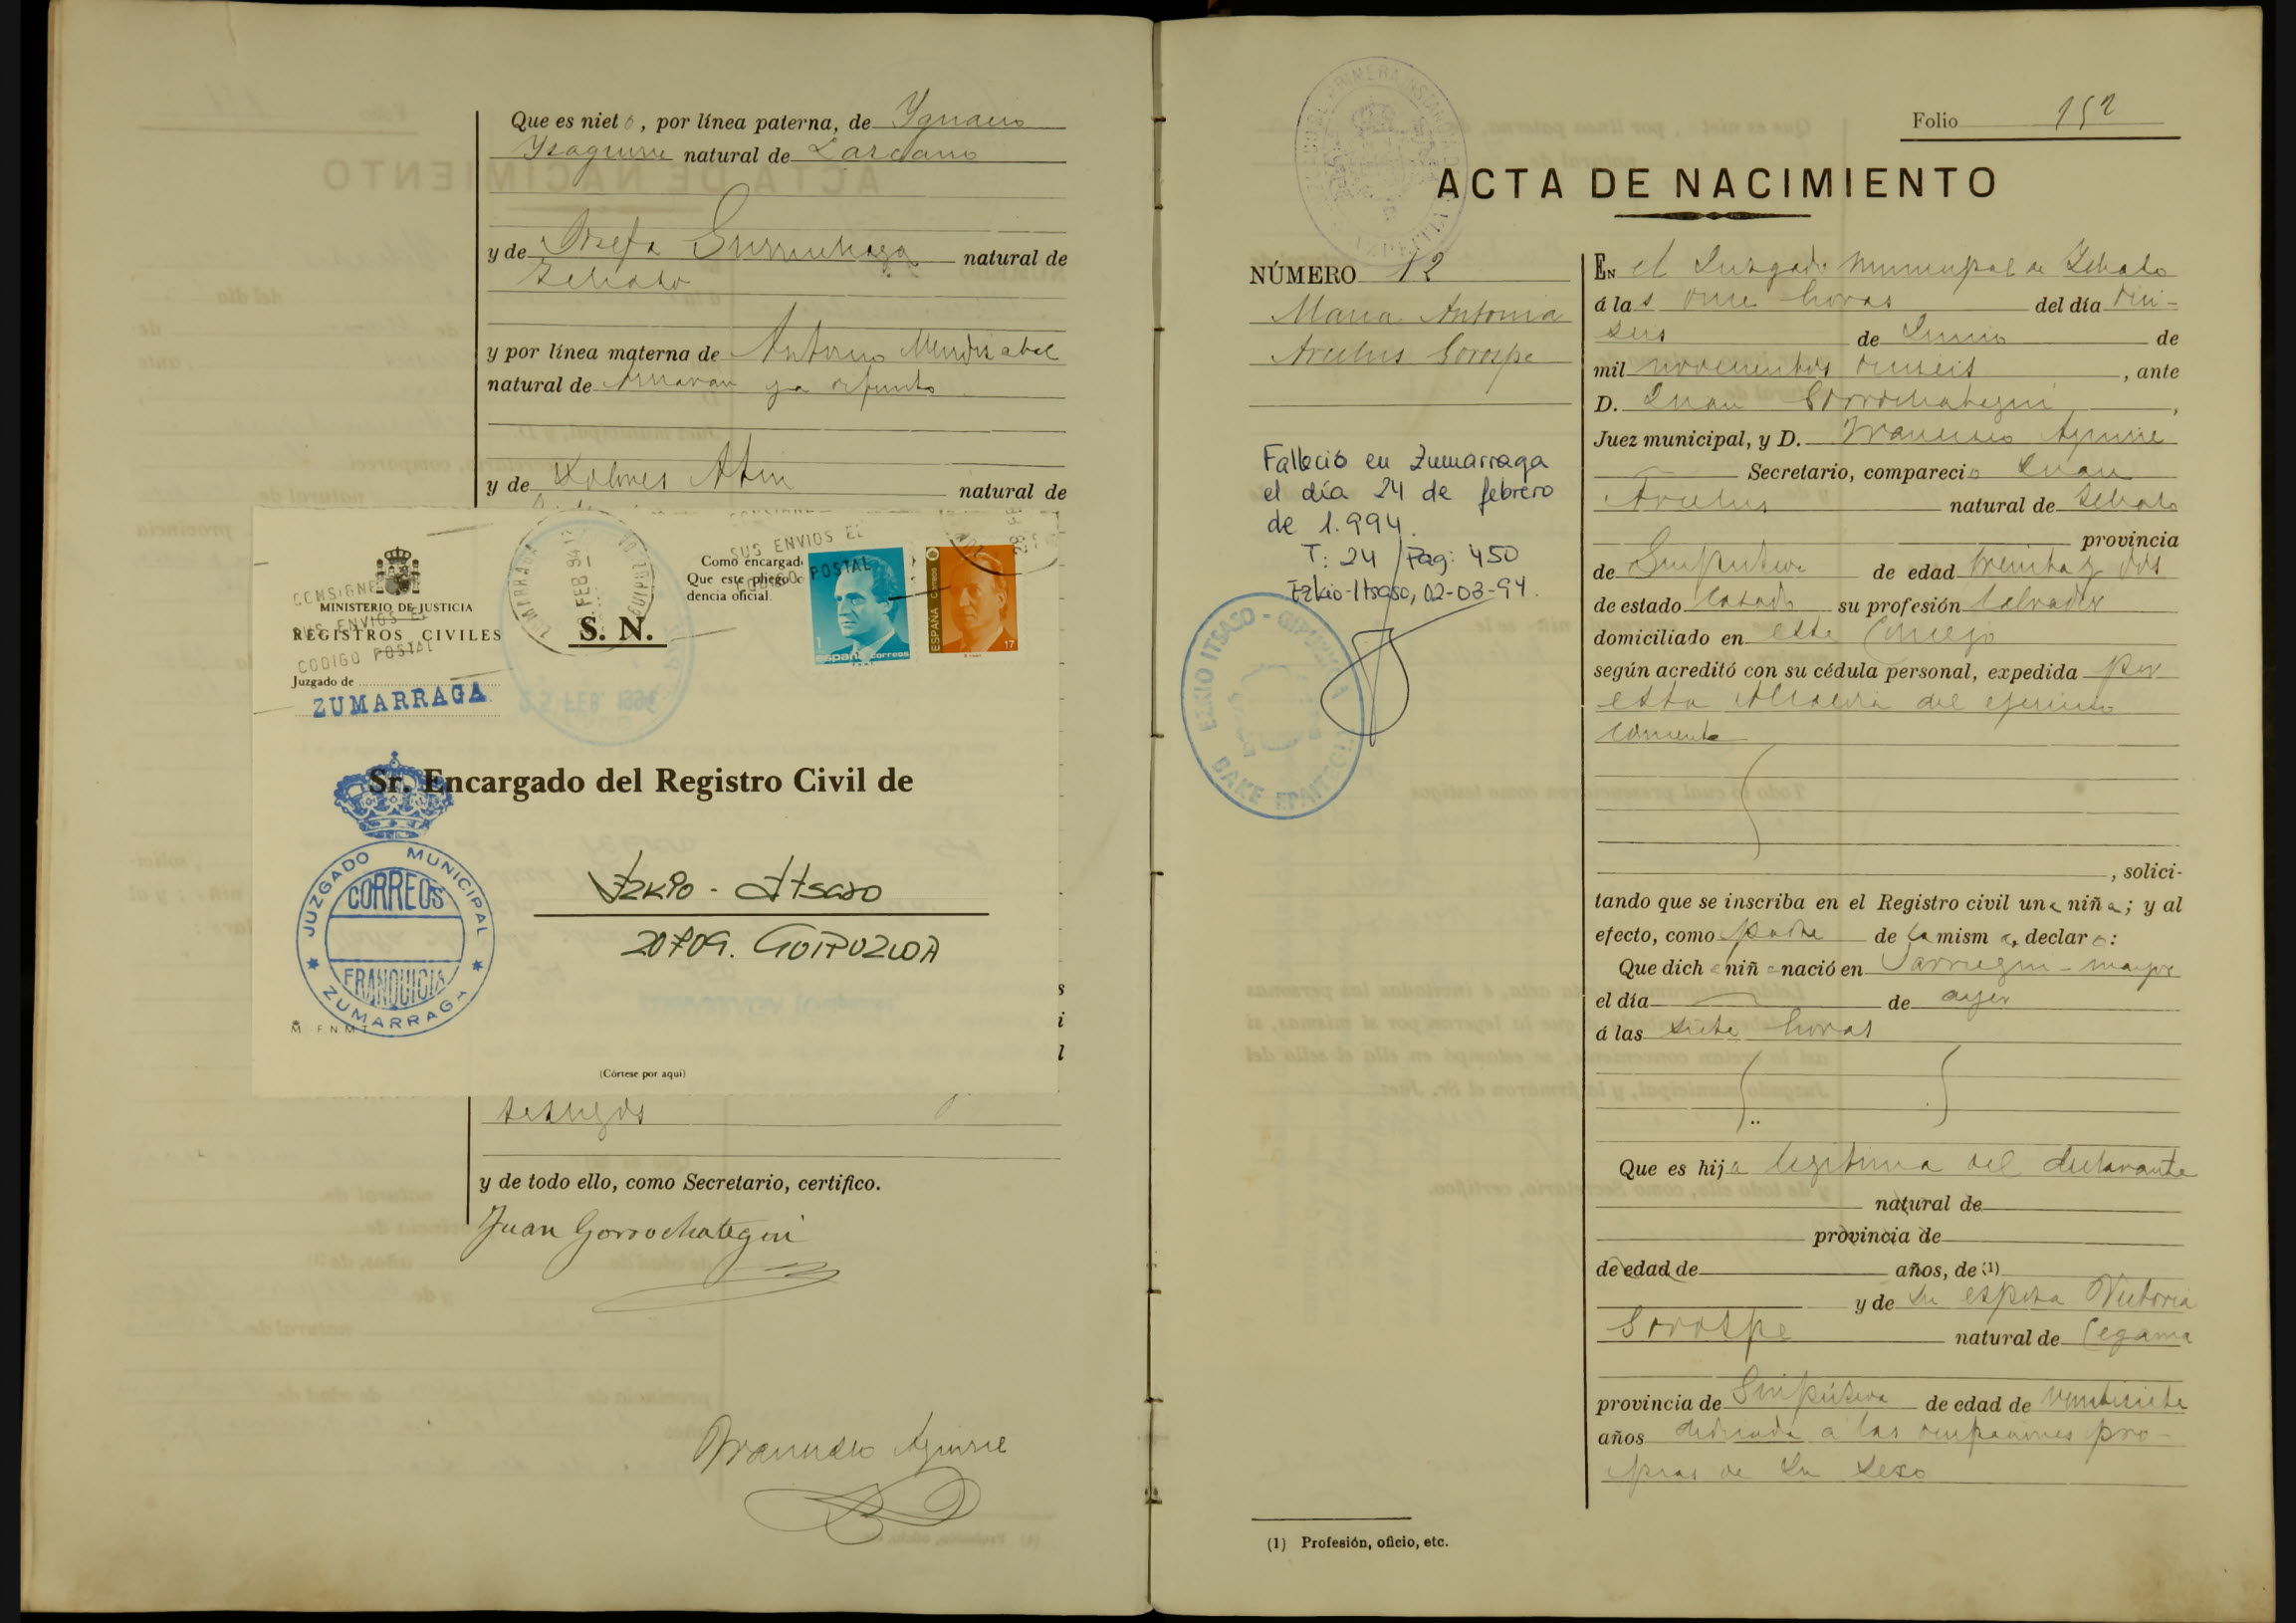 Que es nieto, por línea paterna, de Ygnacio
Ysaguirre natural de Lazcano
y de Josefa Gurruchaga natural de
Ichaso
y por línea materna de Antonio Mendizabal
natural de ya difunto
y de Dolores natural de
CONSIGNE EN
SUS ENVIOS EL
CODIGO POSTAL
MINISTERIO DE JUSTICIA
REGISTROS CIVILES
Juzgado de
ZUMARRAGA
S. N.
ZUMARRAGA
FEB 94
25 FEB. 1994
Como encargad
Que este pliego c
dencia oficial.
SUS ENVIOS EL
CODIGO POSTAL
españa correos
ESPAÑA CORREOS
17
28 FE
Sr. Encargado del Registro Civil de
Ezkio - Itsaso
20709. GUIPUZCOA
JUZGADO MUNICIPAL
CORREOS
FRANQUICIA
ZUMARRAGA
(Córtese por aquí)
s
i
l
testigos
y de todo ello, como Secretario, certifico.
Juan Gorrochategui
Francisco Aguirre
Folio 152
ACTA DE NACIMIENTO
NÚMERO 12
Maria Antonia
Arcelus Gorospe
Falleció en Zumarraga
el día 24 de febrero
de 1.994.
T: 24 / Pag: 450
Ezkio-Itsaso, 02-03-94.
EZKIO ITSASO - GIPUZKOA
BAKE EPAITEGIA
En el Juzgado municipal de Ichaso
á las once horas del día diez y
seis de Junio de
mil novecientos dieciseis, ante
D. Juan Gorrochategui,
Juez municipal, y D. Francisco Aguirre
Secretario, compareció Juan
Arcelus natural de Ichaso
provincia
de Guipúzcoa de edad treinta y dos
de estado casado su profesión labrador
domiciliado en este Concejo
según acreditó con su cédula personal, expedida por
esta Alcaldia del ejercicio
corriente
, solici-
tando que se inscriba en el Registro civil una niña; y al
efecto, como padre de la misma, declaro:
Que dicha niña nació en Sarriegui-mayor
el día de ayer
á las siete horas
Que es hija legitima del declarante
natural de
provincia de
de edad de años, de (1)
y de su esposa Victoria
Gorospe natural de Cegama
provincia de Guipúzcoa de edad de veintisiete
años dedicada a las ocupaciones pro-
pias de su sexo
(1) Profesión, oficio, etc.